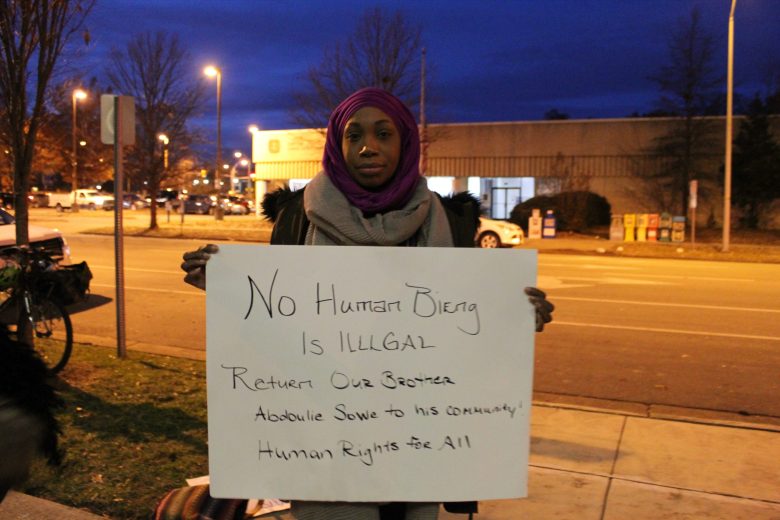 No Human Bieng
Is ILLLGAL
Return Our Brother
Abdoulie Sowe to his community!
Human Rights for All